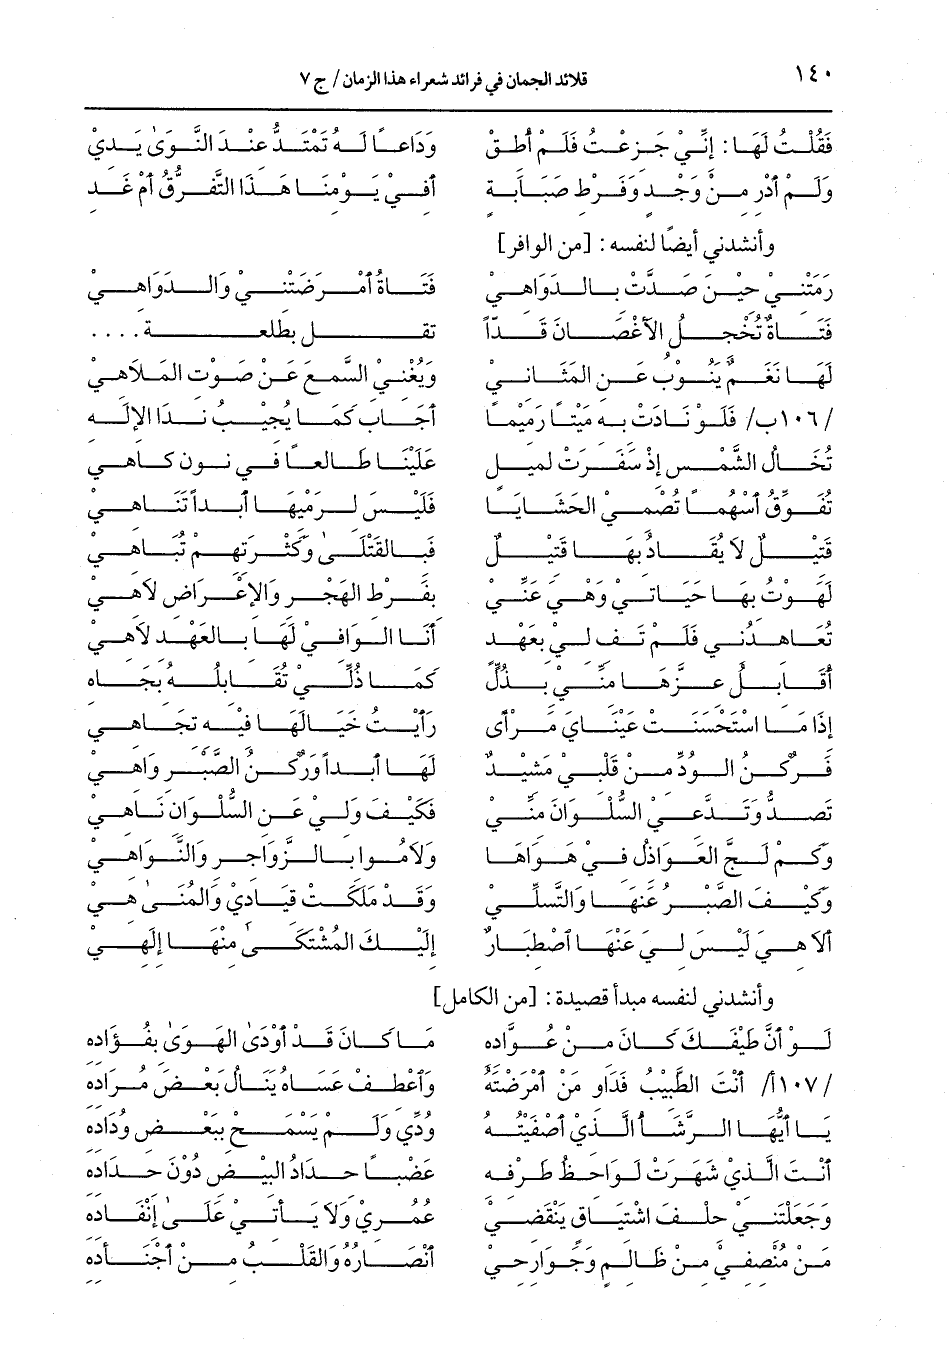 ١٤٠ قلائد الجمان في فرائد شعراء هذا الزمان/ ج ٧
فَقُلْتُ لَهَا: إِنِّيْ جَزِعْتُ فَلَمْ أُطِقْ وَدَاعَاً لَهُ تَمْتَدُّ عِنْدَ النَّوَىٰ يَدِيْ
وَلَمْ أَدْرِ مِنْ وَجْدٍ وَفَرْطِ صَبَابَةٍ أَفِيْ يَوْمِنَا هَذَا التَّفَرُّقُ أَمْ غَدِ
وأنشدني أيضاً لنفسه: [من الوافر]
رَمَتْنِيْ حِيْنَ صَدَّتْ بِالدَّوَاهِيْ فَتَاةٌ أَمْرَضَتْنِيْ وَالدَّوَاهِيْ
فَتَاةٌ تُخْجِلُ الأَغْصَانَ قَدَّاً تقل بطلعة ....
لَهَا نَغَمٌ يَنُوْبُ عَنِ المَثَانِيْ وَيُغْنِي السَّمْعَ عَنْ صَوْتِ المَلَاهِيْ
/١٠٦ب/ فَلَوْ نَادَتْ بِهِ مَيْتَاً رَمِيْمَاً أَجَابَ كَمَا يُجِيْبُ نِدَا الإِلَهِ
تُخَالُ الشَّمْسَ إِذْ سَفَرَتْ لِمَيْلٍ عَلَيْنَا طَالِعَاً فِي نُوْنِ كَاهِيْ
تُفَوِّقُ أَسْهُمَاً تُصْمِيْ الحَشَايَا فَلَيْسَ لِرَمْيِهَا أَبَدَاً تَنَاهِيْ
قَتِيْلٌ لَا يُقَادُ بِهَا قَتِيْلٌ فَبِالقَتْلَىٰ وَكَثْرَتِهِمْ تُبَاهِيْ
لَهَوْتُ بِهَا حَيَاتِيْ وَهْيَ عَنِّيْ بِفَرْطِ الهَجْرِ وَالإِعْرَاضِ لَاهِيْ
تُعَاهِدُنِيْ فَلَمْ تَفِ لِيْ بِعَهْدٍ أَنَا الوَافِيْ لَهَا بِالعَهْدِ لَاهِيْ
أُقَابِلُ عِزَّهَا مِنِّيْ بِذُلٍّ كَمَا ذُلِّيْ تُقَابِلُهُ بِجَاهِ
إِذَا مَا اسْتَحْسَنَتْ عَيْنَايَ مَرْأَىً رَأَيْتُ خَيَالَهَا فِيْهِ تِجَاهِيْ
فَرُكْنُ الوُدِّ مِنْ قَلْبِيْ مَشِيْدٌ لَهَا أَبَدَاً وَرُكْنُ الصَّبْرِ وَاهِيْ
تَصُدُّ وَتَدَّعِيْ السُّلْوَانَ مِنِّيْ فَكَيْفَ وَلِيْ عَنِ السُّلْوَانِ نَاهِيْ
وَكَمْ لَجَّ العَوَاذِلُ فِيْ هَوَاهَا وَلَامُوا بِالزَّوَاجِرِ وَالنَّوَاهِيْ
وَكَيْفَ الصَّبْرُ عَنْهَا وَالتَّسَلِّيْ وَقَدْ مَلَكَتْ قِيَادِيْ وَالمُنَىٰ هِيْ
أَلَا هِيَ لَيْسَ لِيَ عَنْهَا اصْطِبَارٌ إِلَيْكَ المُشْتَكَىٰ مِنْهَا إِلَهِيْ
وأنشدني لنفسه مبدأ قصيدة: [من الكامل]
لَوْ أَنَّ طَيْفَكَ كَانَ مِنْ عُوَّادِهِ مَا كَانَ قَدْ أَوْدَىٰ الهَوَىٰ بِفُؤَادِهِ
/١٠٧أ/ أَنْتَ الطَّبِيْبُ فَدَاوِ مَنْ أَمْرَضْتَهُ وَاعْطِفْ عَسَاهُ يَنَالُ بَعْضَ مُرَادِهِ
يَا أَيُّهَا الرَّشَأُ الَّذِيْ أَصْفَيْتُهُ وُدِّيْ وَلَمْ يَسْمَحْ بِبَعْضِ وِدَادِهِ
أَنْتَ الَّذِيْ شَهَرَتْ لَوَاحِظُ طَرْفِهِ عَضْبَاً حِدَادُ البِيْضِ دُوْنَ حِدَادِهِ
وَجَعَلْتَنِيْ حِلْفَ اشْتِيَاقٍ يَنْقَضِيْ عُمُرِيْ وَلَا يَأْتِيْ عَلَىٰ إِنْفَادِهِ
مَنْ مُنْصِفِيْ مِنْ ظَالِمٍ وَجَوَارِحِيْ أَنْصَارُهُ وَالقَلْبُ مِنْ أَجْنَادِهِ